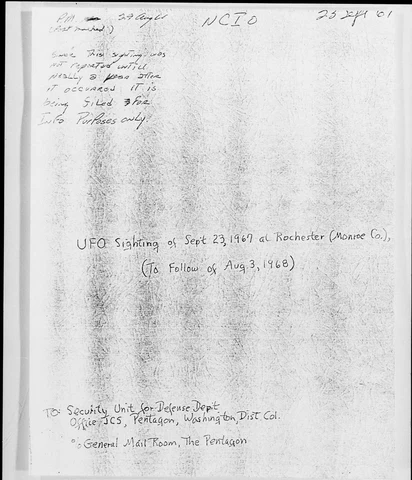 PM — 29 Aug 68
(Post marked)
NCIO
23 Sept 67
Since this sighting was
not reported until
nearly a year after
it occurred it is
being filed for
Info Purposes only.
UFO Sighting of Sept 23, 1967 at Rochester (Monroe Co.),
(To Follow of Aug. 3, 1968)
TO: Security Unit for Defense Dep't
Office JCS, Pentagon, Washington, Dist. Col.
% General Mail Room, The Pentagon